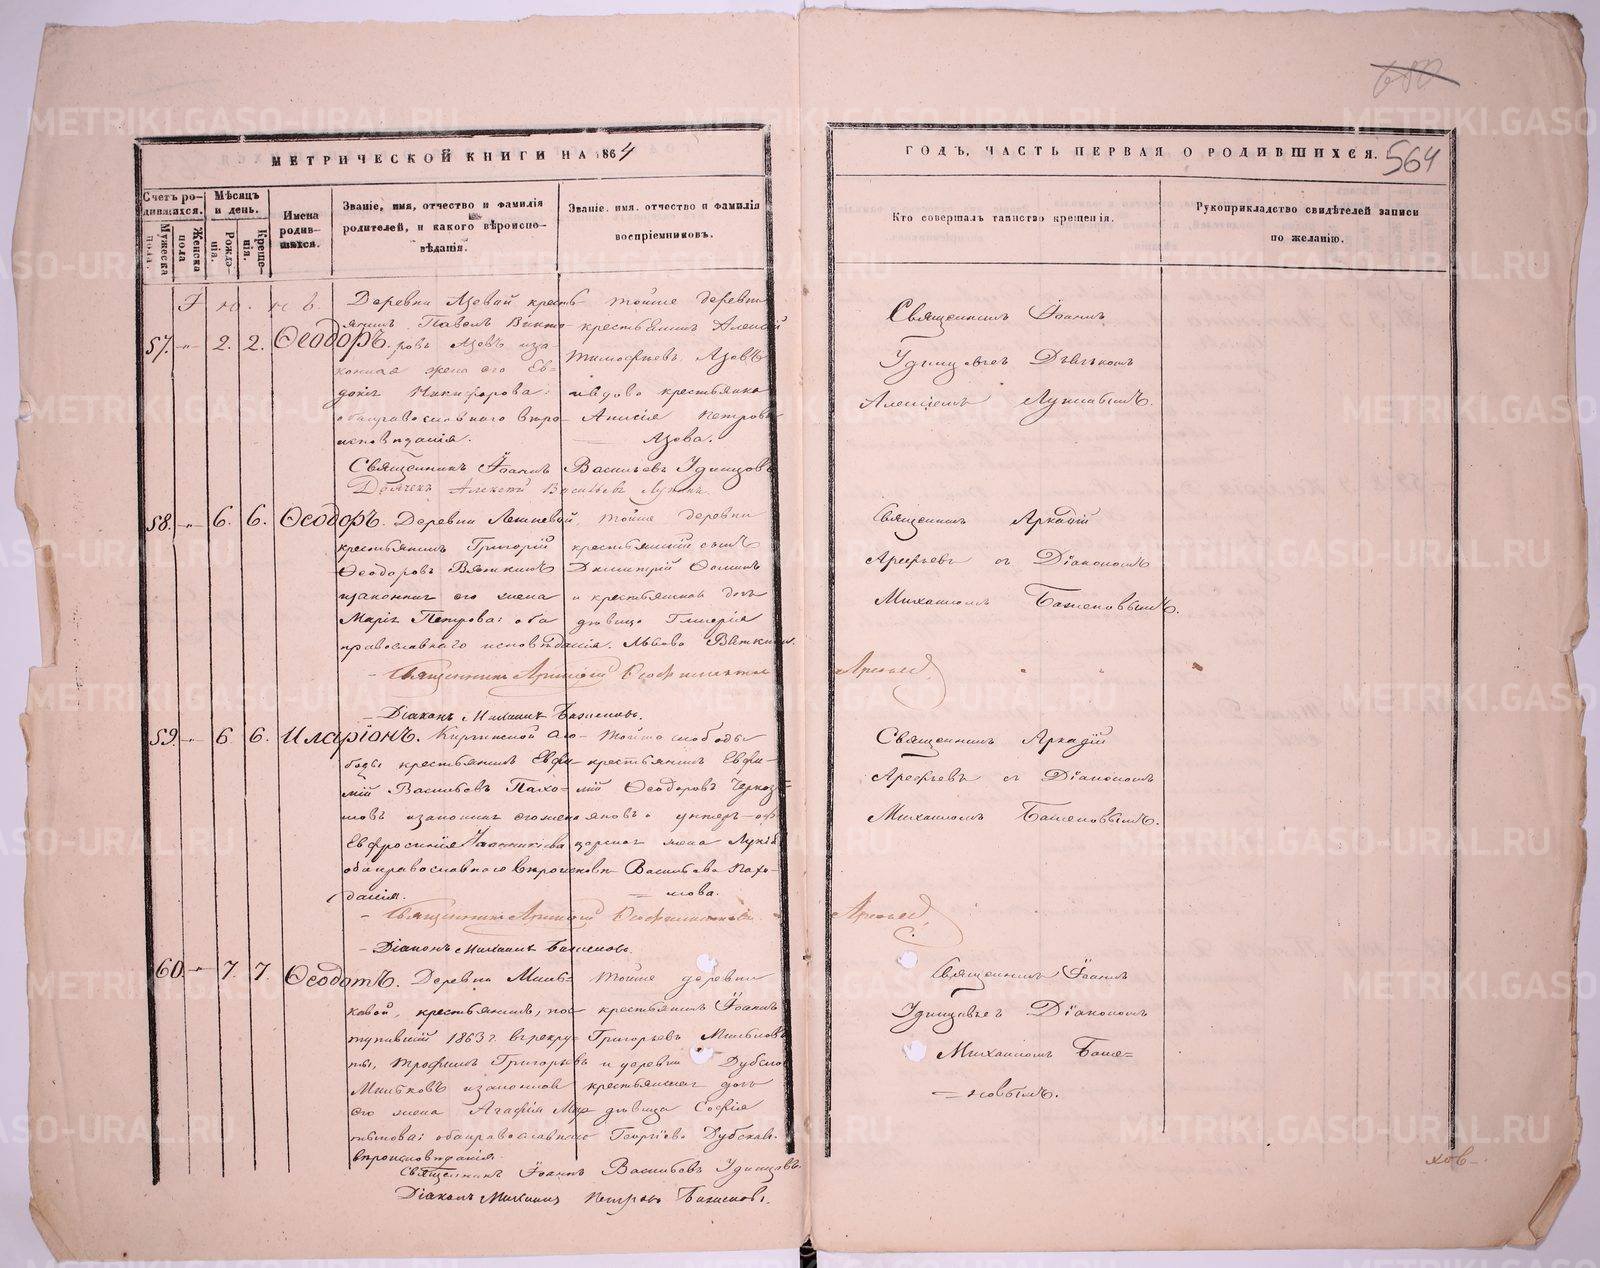 680
МЕТРИЧЕСКОЙ КНИГИ НА 1864
ГОДЪ, ЧАСТЬ ПЕРВАЯ О РОДИВШИХСЯ. 564
Счетъ ро-
дившихся.
Мужеска
пола.
Женска
пола
Мѣсяцъ
и день.
Рожде-
нія.
Креще-
нія.
Имена
родив-
шихся.
Званіе, имя, отчество и фамилія
родителей, и какого вѣроиспо-
вѣданія.
Званіе, имя, отчество и фамилія
воспріемниковъ.
Кто совершалъ таинство крещенія.
Рукоприкладство свидѣтелей записи
по желанію.
57. 2. 2. Ѳеодоръ.
Деревни Азевой кресть-
янинъ Павелъ Викто-
ровъ Азевъ иза-
конная жена его Ев-
докія Никифорова:
оба православнаго вѣро-
исповѣданія.
тойже деревни
крестьянинъ Алексѣй
Тимофѣевъ Азовъ
ивдова крестьянка
Анисія Петрова
Азова.
Священникъ Іоаннъ
Удинцовъ съ Дьячкомъ
Алексѣемъ
Священникъ Іоаннъ Васильевъ Удинцовъ
Дьячекъ Алексѣй Васильевъ
58. 6. 6. Ѳеодоръ.
Деревни
крестьянинъ Григорій
Ѳеодоровъ Вяткинъ
изаконная его жена
Марія Петрова: оба
православнаго исповѣданія.
тойже деревни
крестьянскій сынъ
Димитрій
и крестьянская дочь
дѣвица Гликерія
Львова Вяткины.
Священникъ Аркадій
Арефьевъ съ Діакономъ
Михаиломъ Баженовымъ.
Священникъ Аркадій
Арефьевъ
Діаконъ Михаилъ Баженовъ.
59. 6 6. Иларіонъ.
Киргинской сло-
боды крестьянинъ Евфи-
мій Васильевъ Пахо-
мовъ изаконная его жена
Евфросинія
оба православнаго вѣроисповѣ-
данія.
тойже слободы
крестьянинъ Евфи-
мій Ѳеодоровъ
унтеръ-оф
жена
Васильева Пахо-
мова.
Священникъ Аркадій
Арефьевъ съ Діакономъ
Михаиломъ Баженовымъ.
Священникъ Аркадій
Арефьевъ
Діаконъ Михаилъ Баженовъ.
60. 7. 7. Ѳеодотъ.
Деревни Миль-
ковой, крестьянинъ, пос-
тупившій 1863 г. въ рекру-
ты, Трофимъ Григорьевъ
Мильковъ изаконная
его жена Агафія Мар-
тынова: оба православнаго
вѣроисповѣданія.
тойже деревни
крестьянинъ Іоаннъ
Григорьевъ Мильковъ
и деревни Дубской
крестьянская дочь
дѣвица Софія
Георгіева Дубская.
Священникъ Іоаннъ
Удинцовъ съ Діакономъ
Михаиломъ Баже-
новымъ.
Священникъ Іоаннъ Васильевъ Удинцовъ.
Діаконъ Михаилъ Петровъ Баженовъ.
ховъ-
METRIKI.GASO-URAL.RU